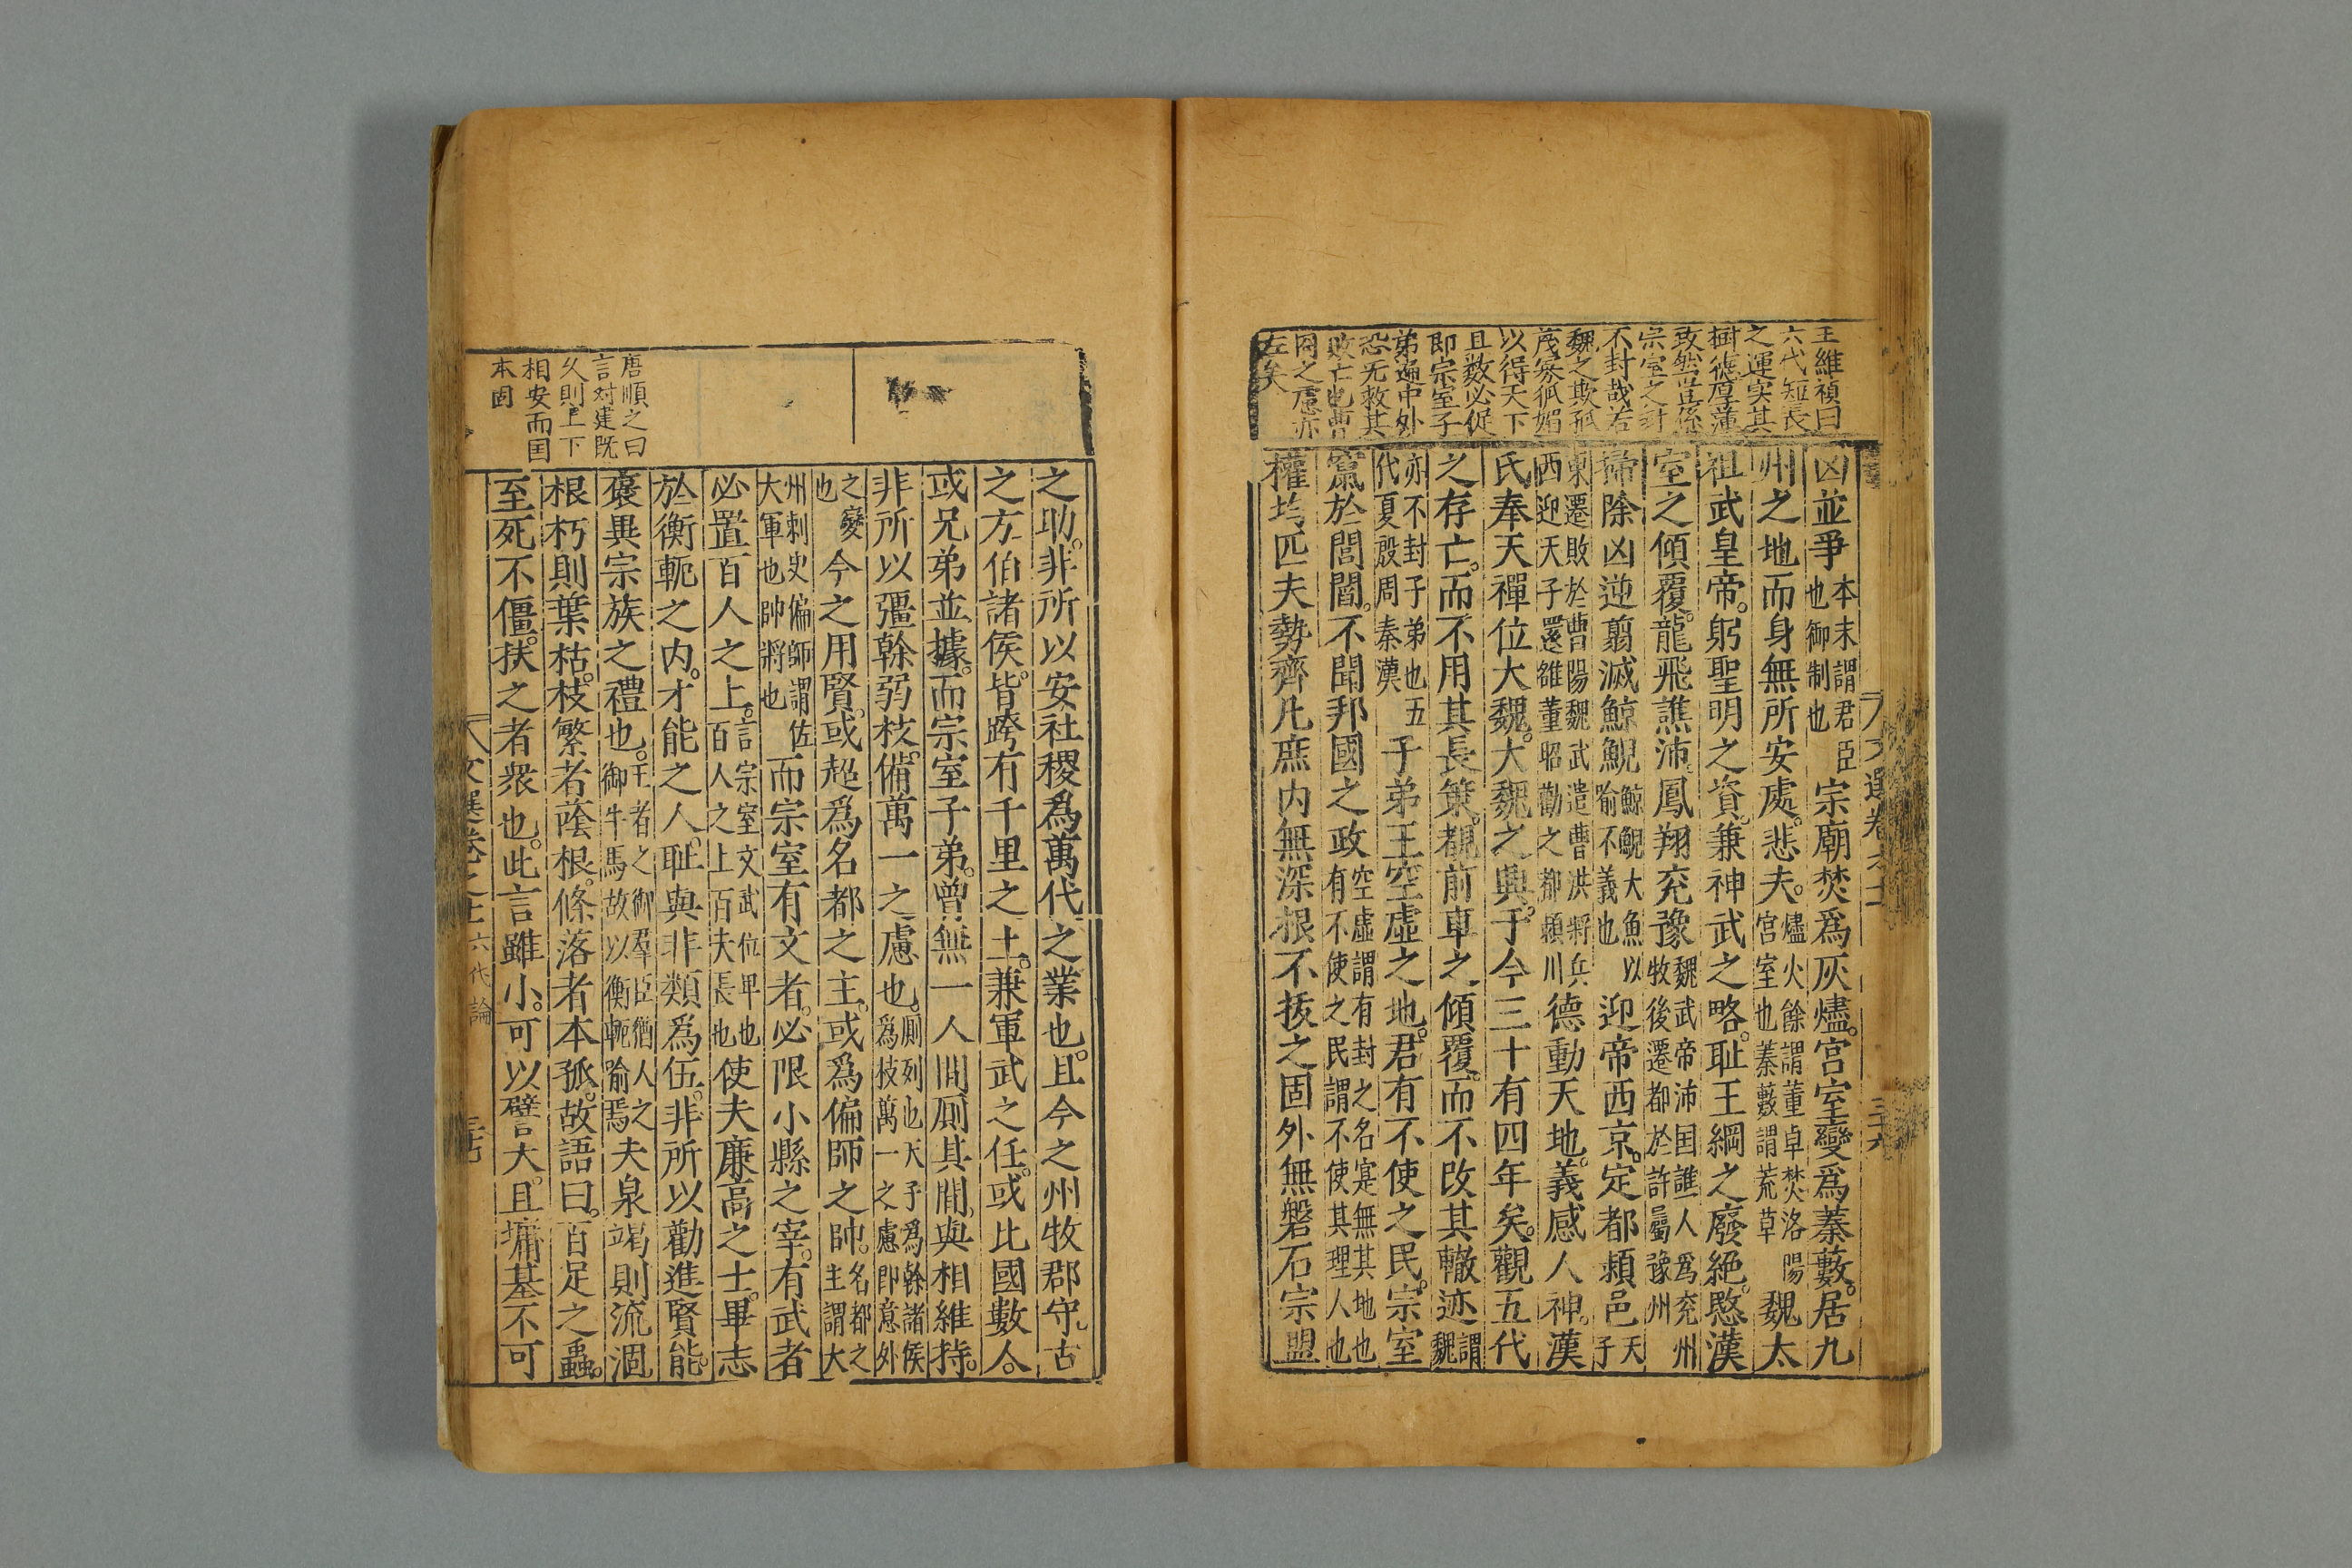 王維禎曰
六代短長
之運実其
樹德厚薄
致然豈係
宗室之封
不封哉若
魏之欺孤
茂寡狐媚
以得天下
且数必促
即宗室子
弟遍中外
恐无救其
敗亡也曹
冏之慮亦
左矣
凶並爭本末謂君臣也御制也宗廟焚爲灰燼宮室變爲蓁藪居九
州之地而身無所安處悲夫燼火餘謂董卓焚洛陽宮室也蓁藪謂荒草魏太
祖武皇帝躬聖明之資兼神武之略耻王綱之廢絕愍漢
室之傾覆龍飛譙沛鳳翔兖豫魏武帝沛国譙人爲兖州牧後遷都於許屬豫州
掃除凶逆翦滅鯨鯢鯨鯢大魚以喻不義也迎帝西京定都潁邑天子
東遷敗於曹陽魏武遣曹洪將兵西迎天子還雒董昭勸之都潁川德動天地義感人神漢
氏奉天禪位大魏大魏之興于今三十有四年矣觀五代
之存亡而不用其長策覩前車之傾覆而不改其轍迹謂魏
亦不封子弟也五代夏殷周秦漢子弟王空虛之地君有不使之民宗室
竄於閭閻不聞邦國之政空虛謂有封之名寔無其地也有不使之民謂不使其理人也
權均匹夫勢齊凡庶内無深根不拔之固外無磐石宗盟
文選卷之十
三十六
唐順之曰
言封建既
久則上下
相安而国
本固
之助非所以安社稷爲萬代之業也且今之州牧郡守古
之方伯諸侯皆跨有千里之土兼軍武之任或比國數人
或兄弟並據而宗室子弟曾無一人間厠其間與相維持
非所以彊幹弱枝備萬一之慮也厠列也天子爲幹諸侯爲枝萬一之慮即意外
之變也今之用賢或超爲名都之主或爲偏師之帥名都之主謂大
州刺史偏師謂佐大軍也帥將也而宗室有文者必限小縣之宰有武者
必置百人之上言宗室文武位卑也百人之上百夫長也使夫廉高之士畢志
於衡軛之内才能之人耻與非類爲伍非所以勸進賢能
褒異宗族之禮也王者之御羣臣猶人之御牛馬故以衡軛喻焉夫泉竭則流涸
根朽則葉枯枝繁者蔭根條落者本孤故語曰百足之蟲
至死不僵扶之者衆也此言雖小可以譬大且墉基不可
六代論